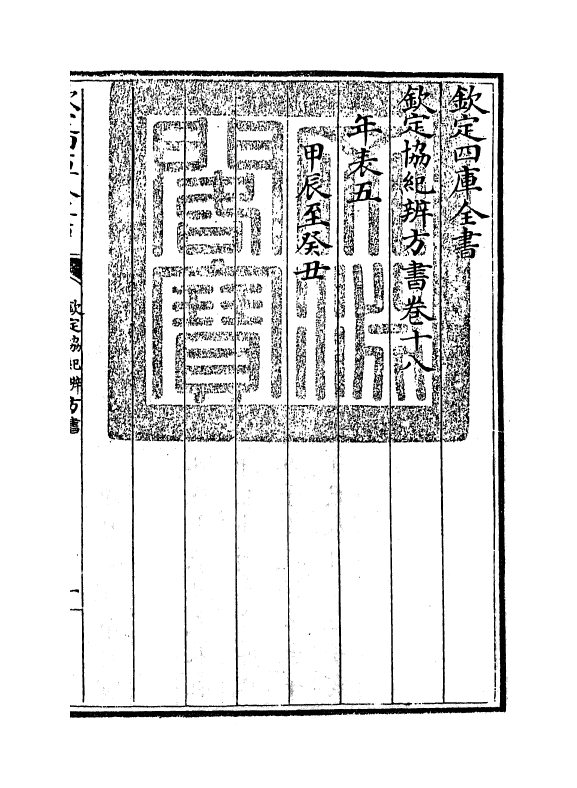 欽定四庫全書
欽定協紀辨方書卷十八
年表五
甲辰至癸丑
欽定協紀辨方書
一